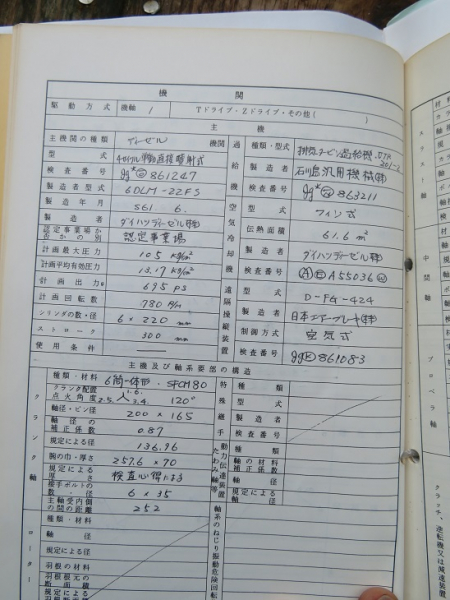 機 関
駆動方式 機軸 1 Tドライブ・Zドライブ・その他( )
主 機
主機関の種類 ディーゼル
型式
検査番号 861247
製造者型式 6DLM-22FS
製造年月 S61 6.
製造者 ダイハツディーゼル㈱
認定事業場か否かの別 認定事業場
計画最大圧力 105 kg/cm²
計画平均有効圧力 13.17 kg/cm²
計画出力 695 PS
計画回転数 780
シリンダの数・径 6 × 220 mm
ストローク 300 mm
使用条件
過給機
種類・型式
製造者 石川島汎用機械㈱
検査番号 863211
空気冷却機
型式 フィン式
伝熱面積 61.6 m²
製造者 ダイハツディーゼル㈱
検査番号 A55036
遠隔操縦装置
型式 D-FG-424
製造者 日本エアーブレーキ㈱
制御方式 空気式
検査番号 861083
主機及び軸系要部の構造
クランク軸
種類・材料 6筒一体型・SFCM80
クランク配置
点火角度 120°
軸径・ピン径 200 × 165
軸径の補正係数 0.87
規定による径 136.96
腕の巾・厚さ 257.6 × 70
規定による厚さ 検査心得による
接手ボルトの数・径 6 × 35
主軸受内側の間の距離 252
種類・材料
軸径
規定による径
羽根の材料
羽根根元の断面積
特殊継手
種類
型式
製造者
検査番号
動力伝達装置
たわみ軸等
種類
軸の材料
補正係数
軸径
規定による軸径
軸系のねじり振動危険回転
スラスト軸
中間軸
プロペラ軸
クラッチ、逆転機又は減速装置